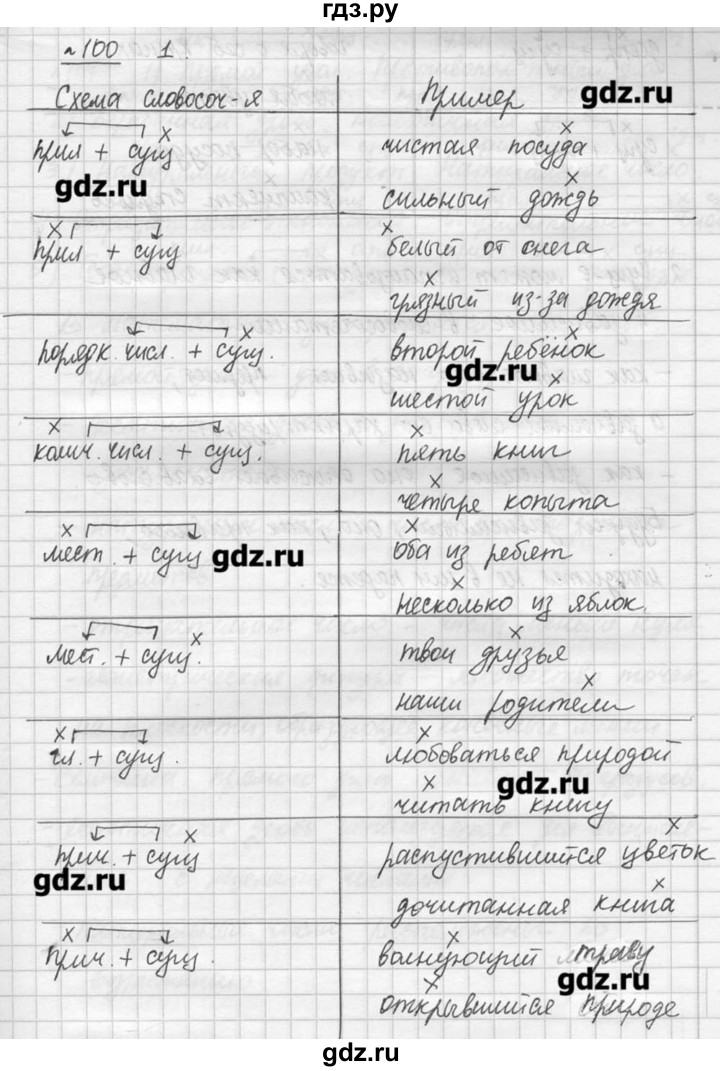 гдз.ру
№ 100 1.
Схема словосоч-я Пример gdz.ru
прил + сущ чистая посуда
gdz.ru сильный дождь
прил + сущ белый от снега
грязный из-за дождя
порядк. числ. + сущ. второй ребёнок
gdz.ru
шестой урок
колич. числ. + сущ. пять книг
четыре копыта
мест. + сущ gdz.ru оба из ребят
несколько из яблок.
мест. + сущ. твои друзья
наши родители
гл. + сущ. любоваться природой
gdz.ru
читать книгу
прич. + сущ распустившийся цветок
gdz.ru
дочитанная книга
прич. + сущ. волнующий траву
gdz.ru
открывшийся природе
gdz.ru